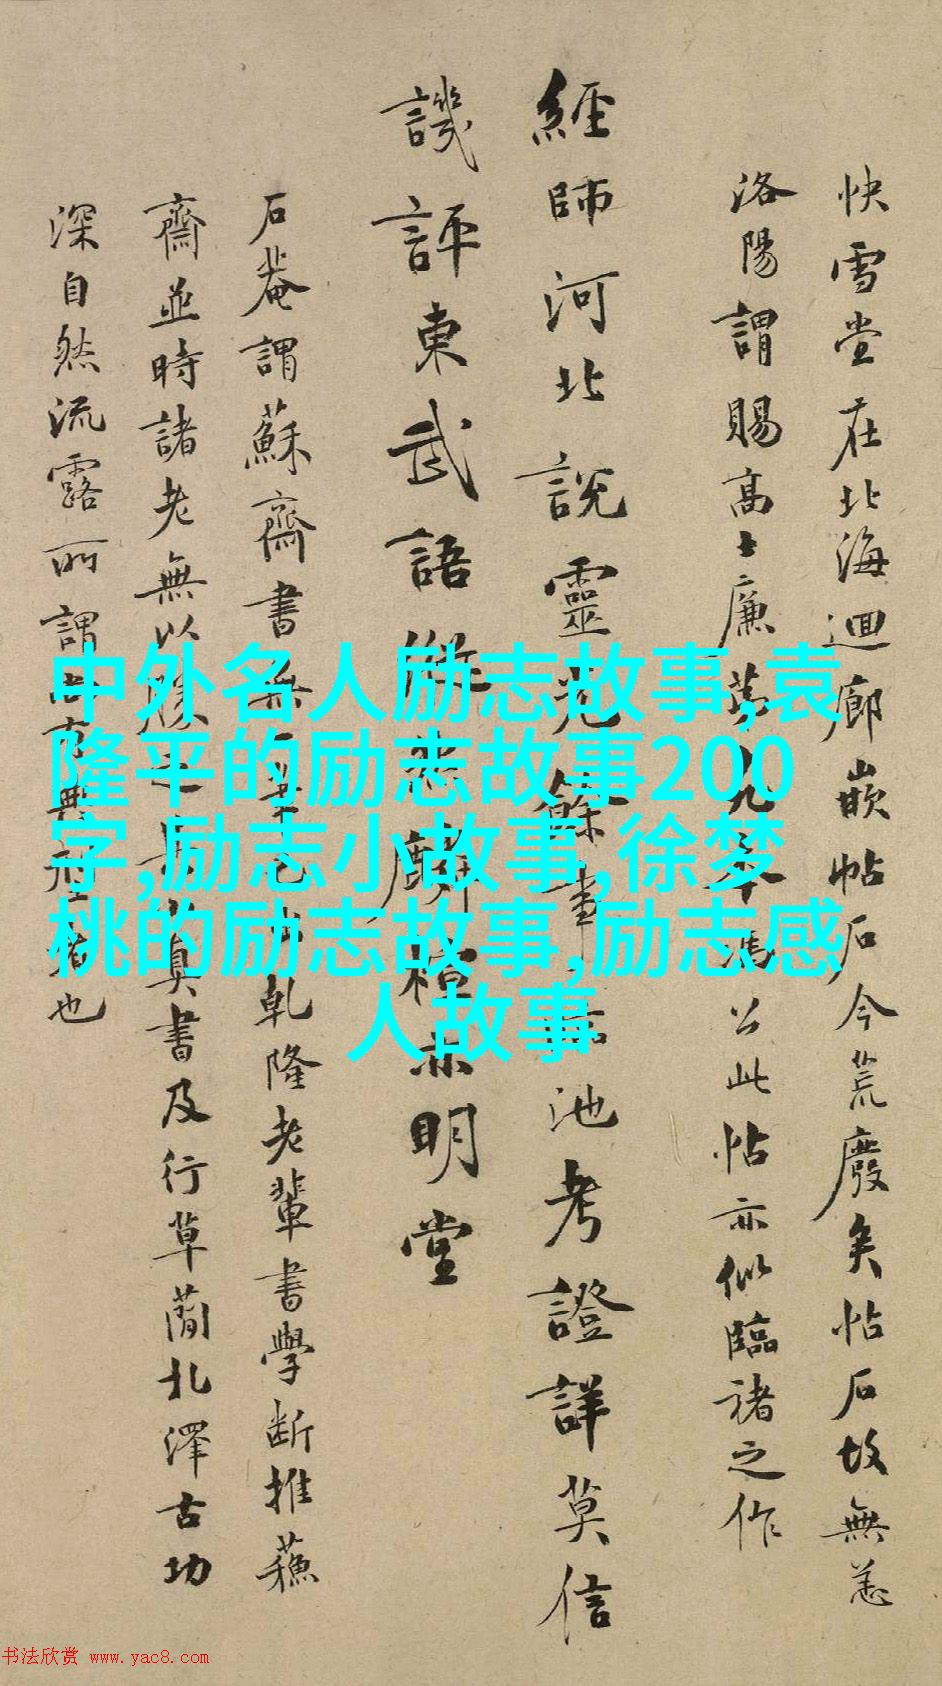 快雪堂在北海迴廊嵌帖石今荒廢矣帖石故無恙
洛陽謂賜高士廉蘭九本馮公此帖亦似臨諸之作
經師河北說靈光餘事池考證詳莫信
譏評東武語麟亦明堂
石菴謂蘇齋書無一筆乾隆老輩書學斷推蘓
齋並時諸老無以勝之真書及行草蘭北澤古功
深自然流露所謂也
中外名人励志故事,袁
隆平的励志故事200
字,励志小故事,徐梦
桃的励志故事,励志感
人故事
书法欣赏 www.yac8.com